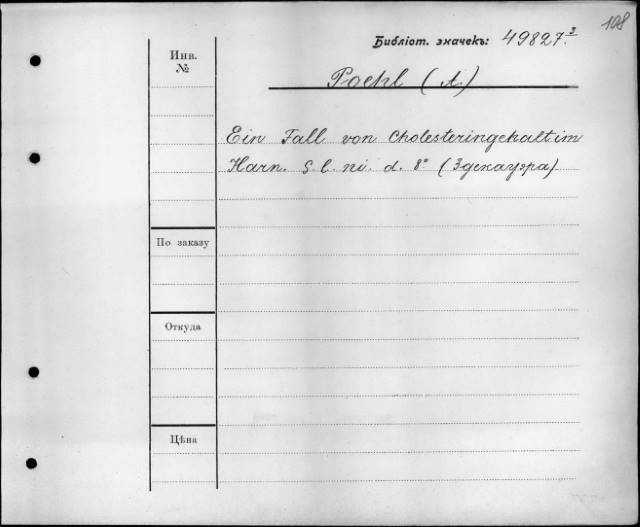 108
Библіот. значекъ: 49827.3
Инв.
№
Poehl (A.)
Ein Fall von Cholesteringehalt im
Harn. S. l. ni. d. 8° (3 декауэра)
По заказу
Откуда
Цѣна